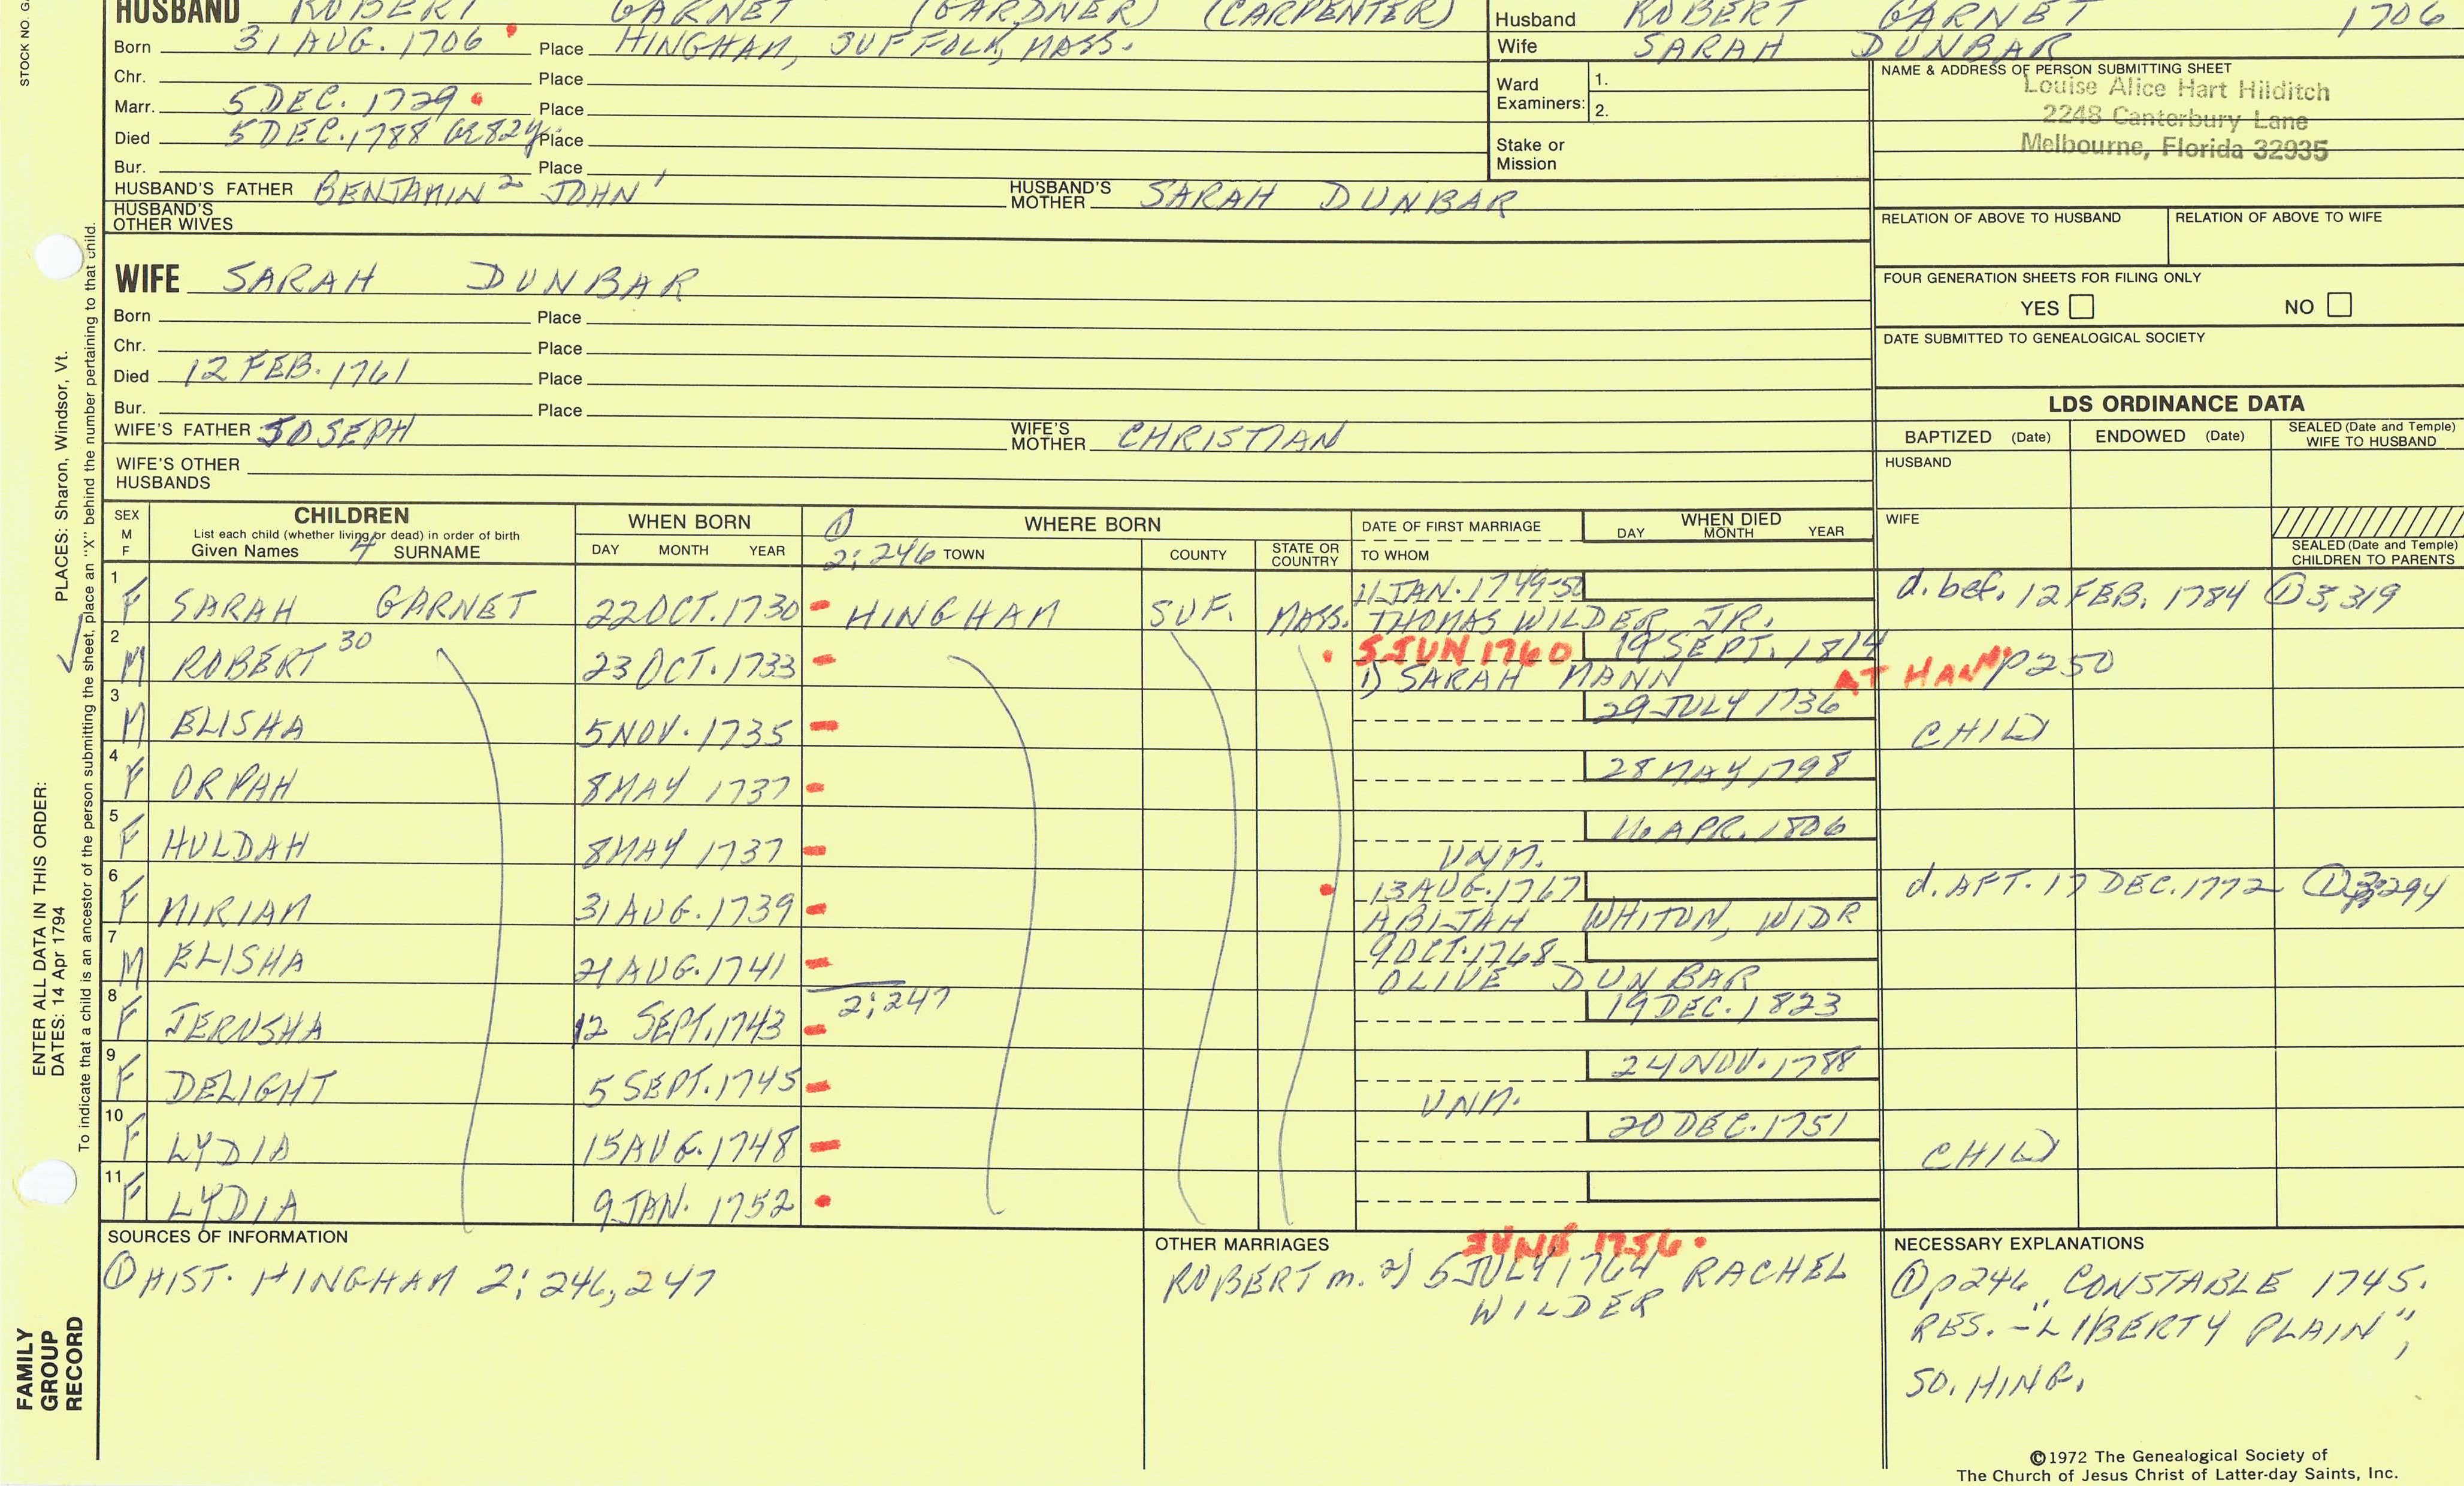 STOCK NO. G
HUSBAND ROBERT GARNET (GARDNER) (CARPENTER)
Born 31 AUG. 1706 Place HINGHAM, SUFFOLK, MASS.
Chr. Place
Marr. 5 DEC. 1729 Place
Died 5 DEC. 1788 Æ 82y Place
Bur. Place
HUSBAND'S FATHER BENJAMIN 2 JOHN 1 HUSBAND'S MOTHER SARAH DUNBAR
HUSBAND'S OTHER WIVES
Husband ROBERT GARNET 1706
Wife SARAH DUNBAR
Ward Examiners: 1.
2.
Stake or Mission
NAME & ADDRESS OF PERSON SUBMITTING SHEET
Louise Alice Hart Hilditch
2248 Canterbury Lane
Melbourne, Florida 32935
RELATION OF ABOVE TO HUSBAND RELATION OF ABOVE TO WIFE
FOUR GENERATION SHEETS FOR FILING ONLY
YES NO
DATE SUBMITTED TO GENEALOGICAL SOCIETY
WIFE SARAH DUNBAR
Born Place
Chr. Place
Died 12 FEB. 1761 Place
Bur. Place
WIFE'S FATHER JOSEPH WIFE'S MOTHER CHRISTIAN
WIFE'S OTHER HUSBANDS
LDS ORDINANCE DATA
BAPTIZED (Date) ENDOWED (Date) SEALED (Date and Temple) WIFE TO HUSBAND
HUSBAND
WIFE
SEALED (Date and Temple) CHILDREN TO PARENTS
SEX M F
CHILDREN
List each child (whether living or dead) in order of birth
Given Names 4 SURNAME
WHEN BORN
DAY MONTH YEAR
① WHERE BORN
2:246 TOWN COUNTY STATE OR COUNTRY
DATE OF FIRST MARRIAGE
TO WHOM
WHEN DIED
DAY MONTH YEAR
1 F SARAH GARNET 22 OCT. 1730 HINGHAM SUF. MASS. 11 JAN. 1749-50 d. bef. 12 FEB. 1784 ① 3,319
THOMAS WILDER JR.
2 M ROBERT 30 23 OCT. 1733 5 JUN 1760 19 SEPT. 1814
1) SARAH MANN AT HAN p250
3 M ELISHA 5 NOV. 1735 29 JULY 1736 CHILD
4 F ORPAH 8 MAY 1737 28 MAY, 1798
5 F HULDAH 8 MAY 1737 16 APR. 1806
UNM.
6 F MIRIAM 31 AUG. 1739 13 AUG. 1767 d. AFT. 17 DEC. 1772 ① 294
ABIJAH WHITON, WIDR
7 M ELISHA 21 AUG. 1741 9 OCT. 1768
OLIVE DUNBAR
8 F JERUSHA 12 SEPT. 1743 2:247 19 DEC. 1823
9 F DELIGHT 5 SEPT. 1745 24 NOV. 1788
UNM.
10 F LYDIA 15 AUG. 1748 20 DEC. 1751 CHILD
11 F LYDIA 9 JAN. 1752
SOURCES OF INFORMATION
① HIST. HINGHAM 2:246,247
OTHER MARRIAGES
JUNE 1756
ROBERT m. 2) 5 JULY 1764 RACHEL
WILDER
NECESSARY EXPLANATIONS
① p246 CONSTABLE 1745.
RES. - "LIBERTY PLAIN",
SO. HING.
©1972 The Genealogical Society of
The Church of Jesus Christ of Latter-day Saints, Inc.
ENTER ALL DATA IN THIS ORDER:
DATES: 14 Apr 1794 PLACES: Sharon, Windsor, Vt.
To indicate that a child is an ancestor of the person submitting the sheet, place an "X" behind the number pertaining to that child.
FAMILY
GROUP
RECORD